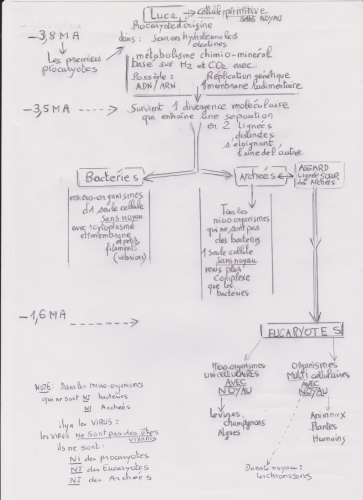 Luca → cellule primitive
SANS NOYAU
Procaryote d'origine
–3,8 MA
dans: sources hydrothermales
alcalines
Les premiers
procaryotes
métabolisme chimio-minéral
basé sur H2 et CO2 avec
Possède:
ADN/ARN
Réplication génétique
1 membrane rudimentaire
–3,5 MA
Survient 1 divergence moléculaire
qui entraîne 1 une séparation
en 2 lignées
distinctes
s'éloignant
l'une de l'autre
Bactéries
Archées
ASGARD
Lignée SOEUR
des Archées
micro-organismes
d'1 seule cellule
sans noyau
avec 1 cytoplasme
et 1 membrane
et petits
filaments
(vibrations)
Tous les
micro organismes
qui ne sont pas
des bactéries
1 seule cellule
sans noyau
mais plus
complexe
que les
bactéries
–1,6 MA
EUCARYOTES
Micro-organismes
UNICELLULAIRES
AVEC
NOYAU
Organismes
Multi cellulaires
AVEC
NOYAU
Levures
Champignons
Algues
Animaux
Plantes
Humains
NOTE: Dans les micro-organismes
qui ne sont NI bactéries
NI Archées
il y a les VIRUS:
Les VIRUS Ne sont pas des êtres
vivants
ils ne sont:
NI des procaryotes
NI des Eucaryotes
NI des Archées
Dans le noyau:
les chromosomes